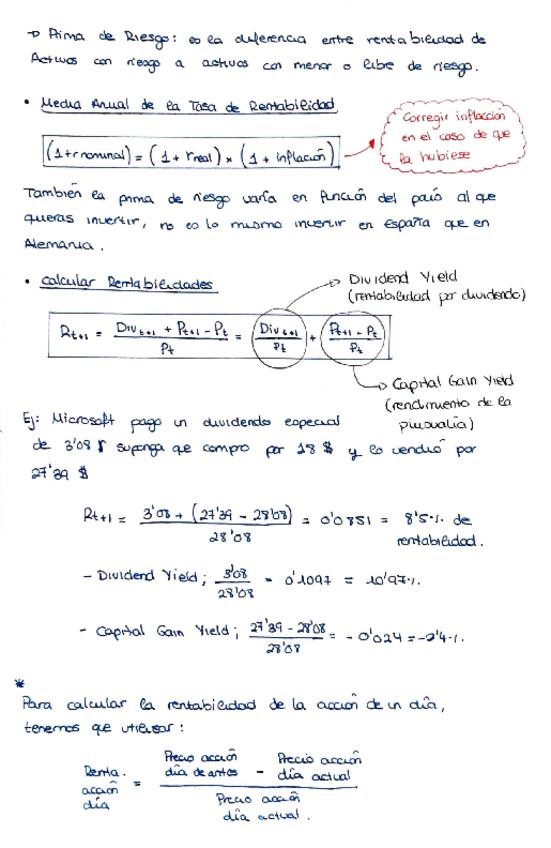 → Prima de Riesgo: es la diferencia entre rentabilidad de
Activos con riesgo a activos con menor o libre de riesgo.
• Media Anual de la Tasa de Rentabilidad
(1+r nominal) = (1 + rreal) × (1 + inflación)
Corregir inflacción
en el caso de que
la hubiese
También la prima de riesgo varía en función del país al que
queras invertir, no es lo mismo invertir en españa que en
Alemania.
• Calcular Rentabilidades
Dividend Yield
(rentabilidad por dividendo)
Rt+1 = Divt+1 + Pt+1 - Pt / Pt = Divt+1 / Pt + Pt+1 - Pt / Pt
Capital Gain Yield
(rendimiento de la
plusvalía)
Ej: Microsoft pago un dividendo especial
de 3'08 $ suponga que compro por 18 $ y lo vendió por
27'39 $
Rt+1 = 3'08 + (27'39 - 28'08) / 28'08 = 0'0851 = 8'5% de
rentabilidad.
- Dividend Yield; 3'08 / 28'08 = 0'1097 = 10'97%
- Capital Gain Yield; 27'39 - 28'08 / 28'08 = -0'024 = -2'4%
*
Para calcular la rentabilidad de la acción de un día,
tenemos que utilisar:
Renta. acción día = Precio acción día de antes - Precio acción día actual / Precio acción día actual.